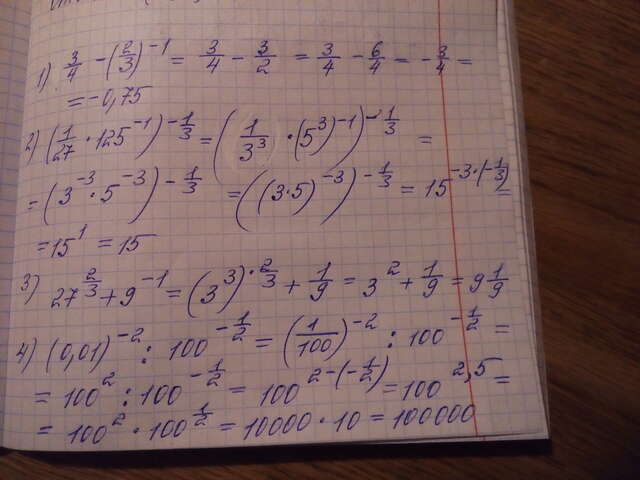 1) 3/4 - (2/3)^-1 = 3/4 - 3/2 = 3/4 - 6/4 = -3/4 =
= -0,75
2) (1/27 · 125^-1)^-1/3 = (1/3^3 · (5^3)^-1)^-1/3 =
= (3^-3 · 5^-3)^-1/3 = ((3·5)^-3)^-1/3 = 15^-3·(-1/3) =
= 15^1 = 15
3) 27^2/3 + 9^-1 = (3^3)^·2/3 + 1/9 = 3^2 + 1/9 = 9 1/9
4) (0,01)^-2 : 100^-1/2 = (1/100)^-2 : 100^-1/2 =
= 100^2 : 100^-1/2 = 100^2-(-1/2) = 100^2,5 =
= 100^2 · 100^1/2 = 10000 · 10 = 100000